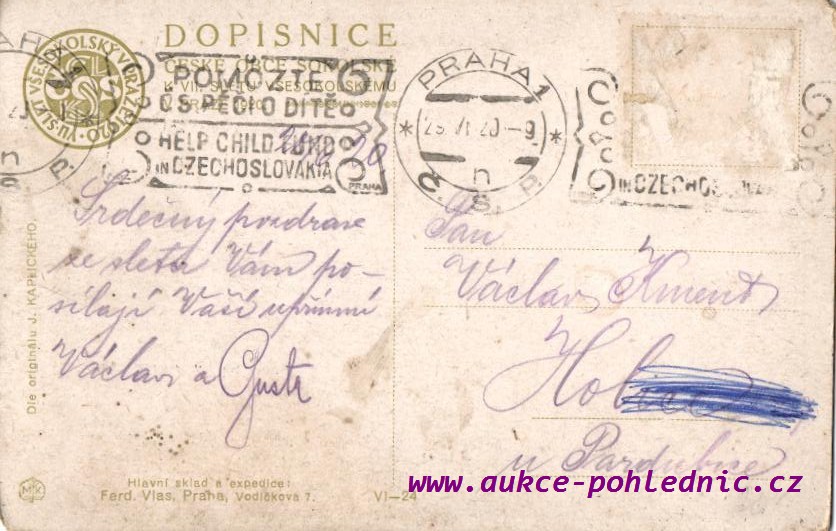 DOPISNICE
ČESKÉ OBCE SOKOLSKÉ
K VII. SLETU VŠESOKOLSKÉMU
V PRAZE 1920.
VII. SLET VŠESOKOLSKÝ V PRAZE 1920
POMOZTE
ČS. PÉČI O DÍTĚ
HELP CHILD FUND
IN CZECHOSLOVAKIA
PRAHA
PRAHA 1
29 VI 20 -9
n
Č. S. P.
IN CZECHOS
Srdečný pozdrav
ze sletu Vám po-
sílají Vaši upřímní
Václav a Gusta
Pan
Václav Kment
u Pardubice
Dle originálu J. KAPLICKÉHO.
Hlavní sklad a expedice:
Ferd. Vlas, Praha, Vodičkova 7.
VI-24
www.aukce-pohlednic.cz